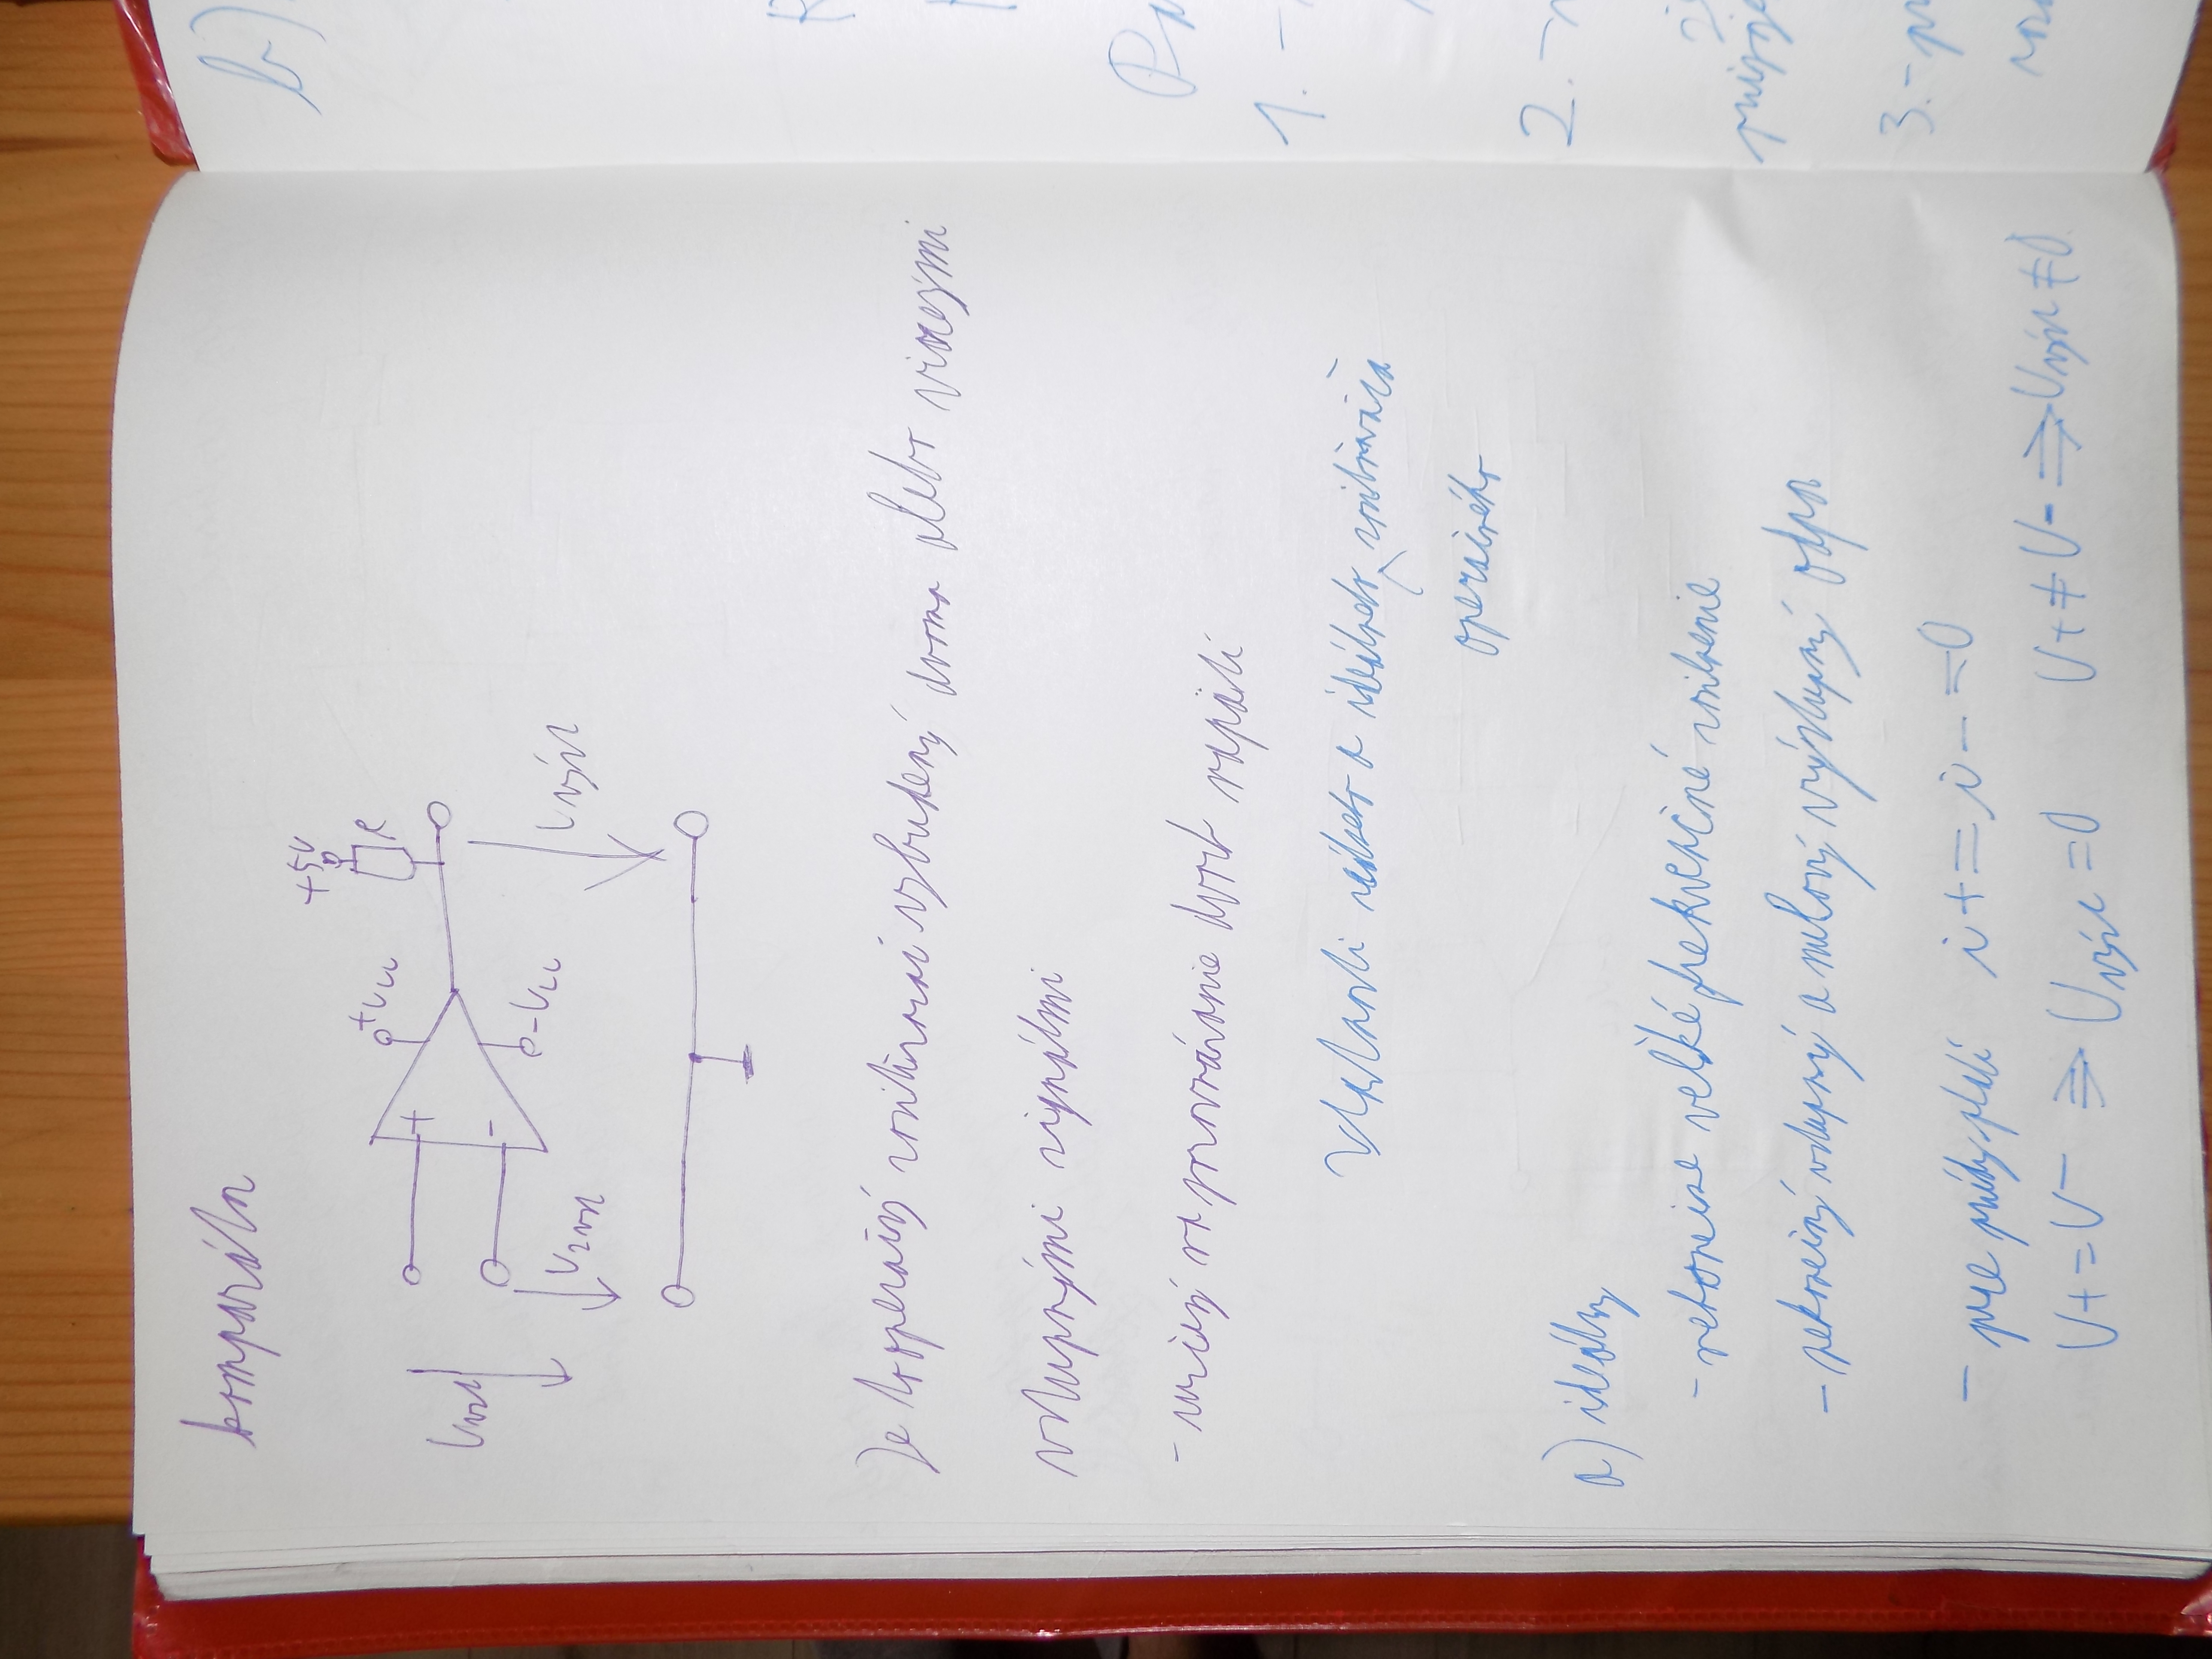 komparátor
+5V
R
+Ucc
-Ucc
+
-
U2vst
Uvýst
Je to operačný zosilňovač vybudený dvoma alebo viacerými
vstupnými signálmi
- určený na porovnanie dvoch napätí
Vlastnosti reálneho a ideálneho zosilňovača
operačného
a) ideálny
- nekonečne veľké frekvenčné zosilnenie
- nekonečný vstupný a nulový výstupný odpor
- pre prúdy platí i+ = i- = 0
U+ = U- ⇒ Uvýst = 0 U+ ≠ U- ⇒ Uvýst ≠ 0
b)
1. -
2. -
3. -